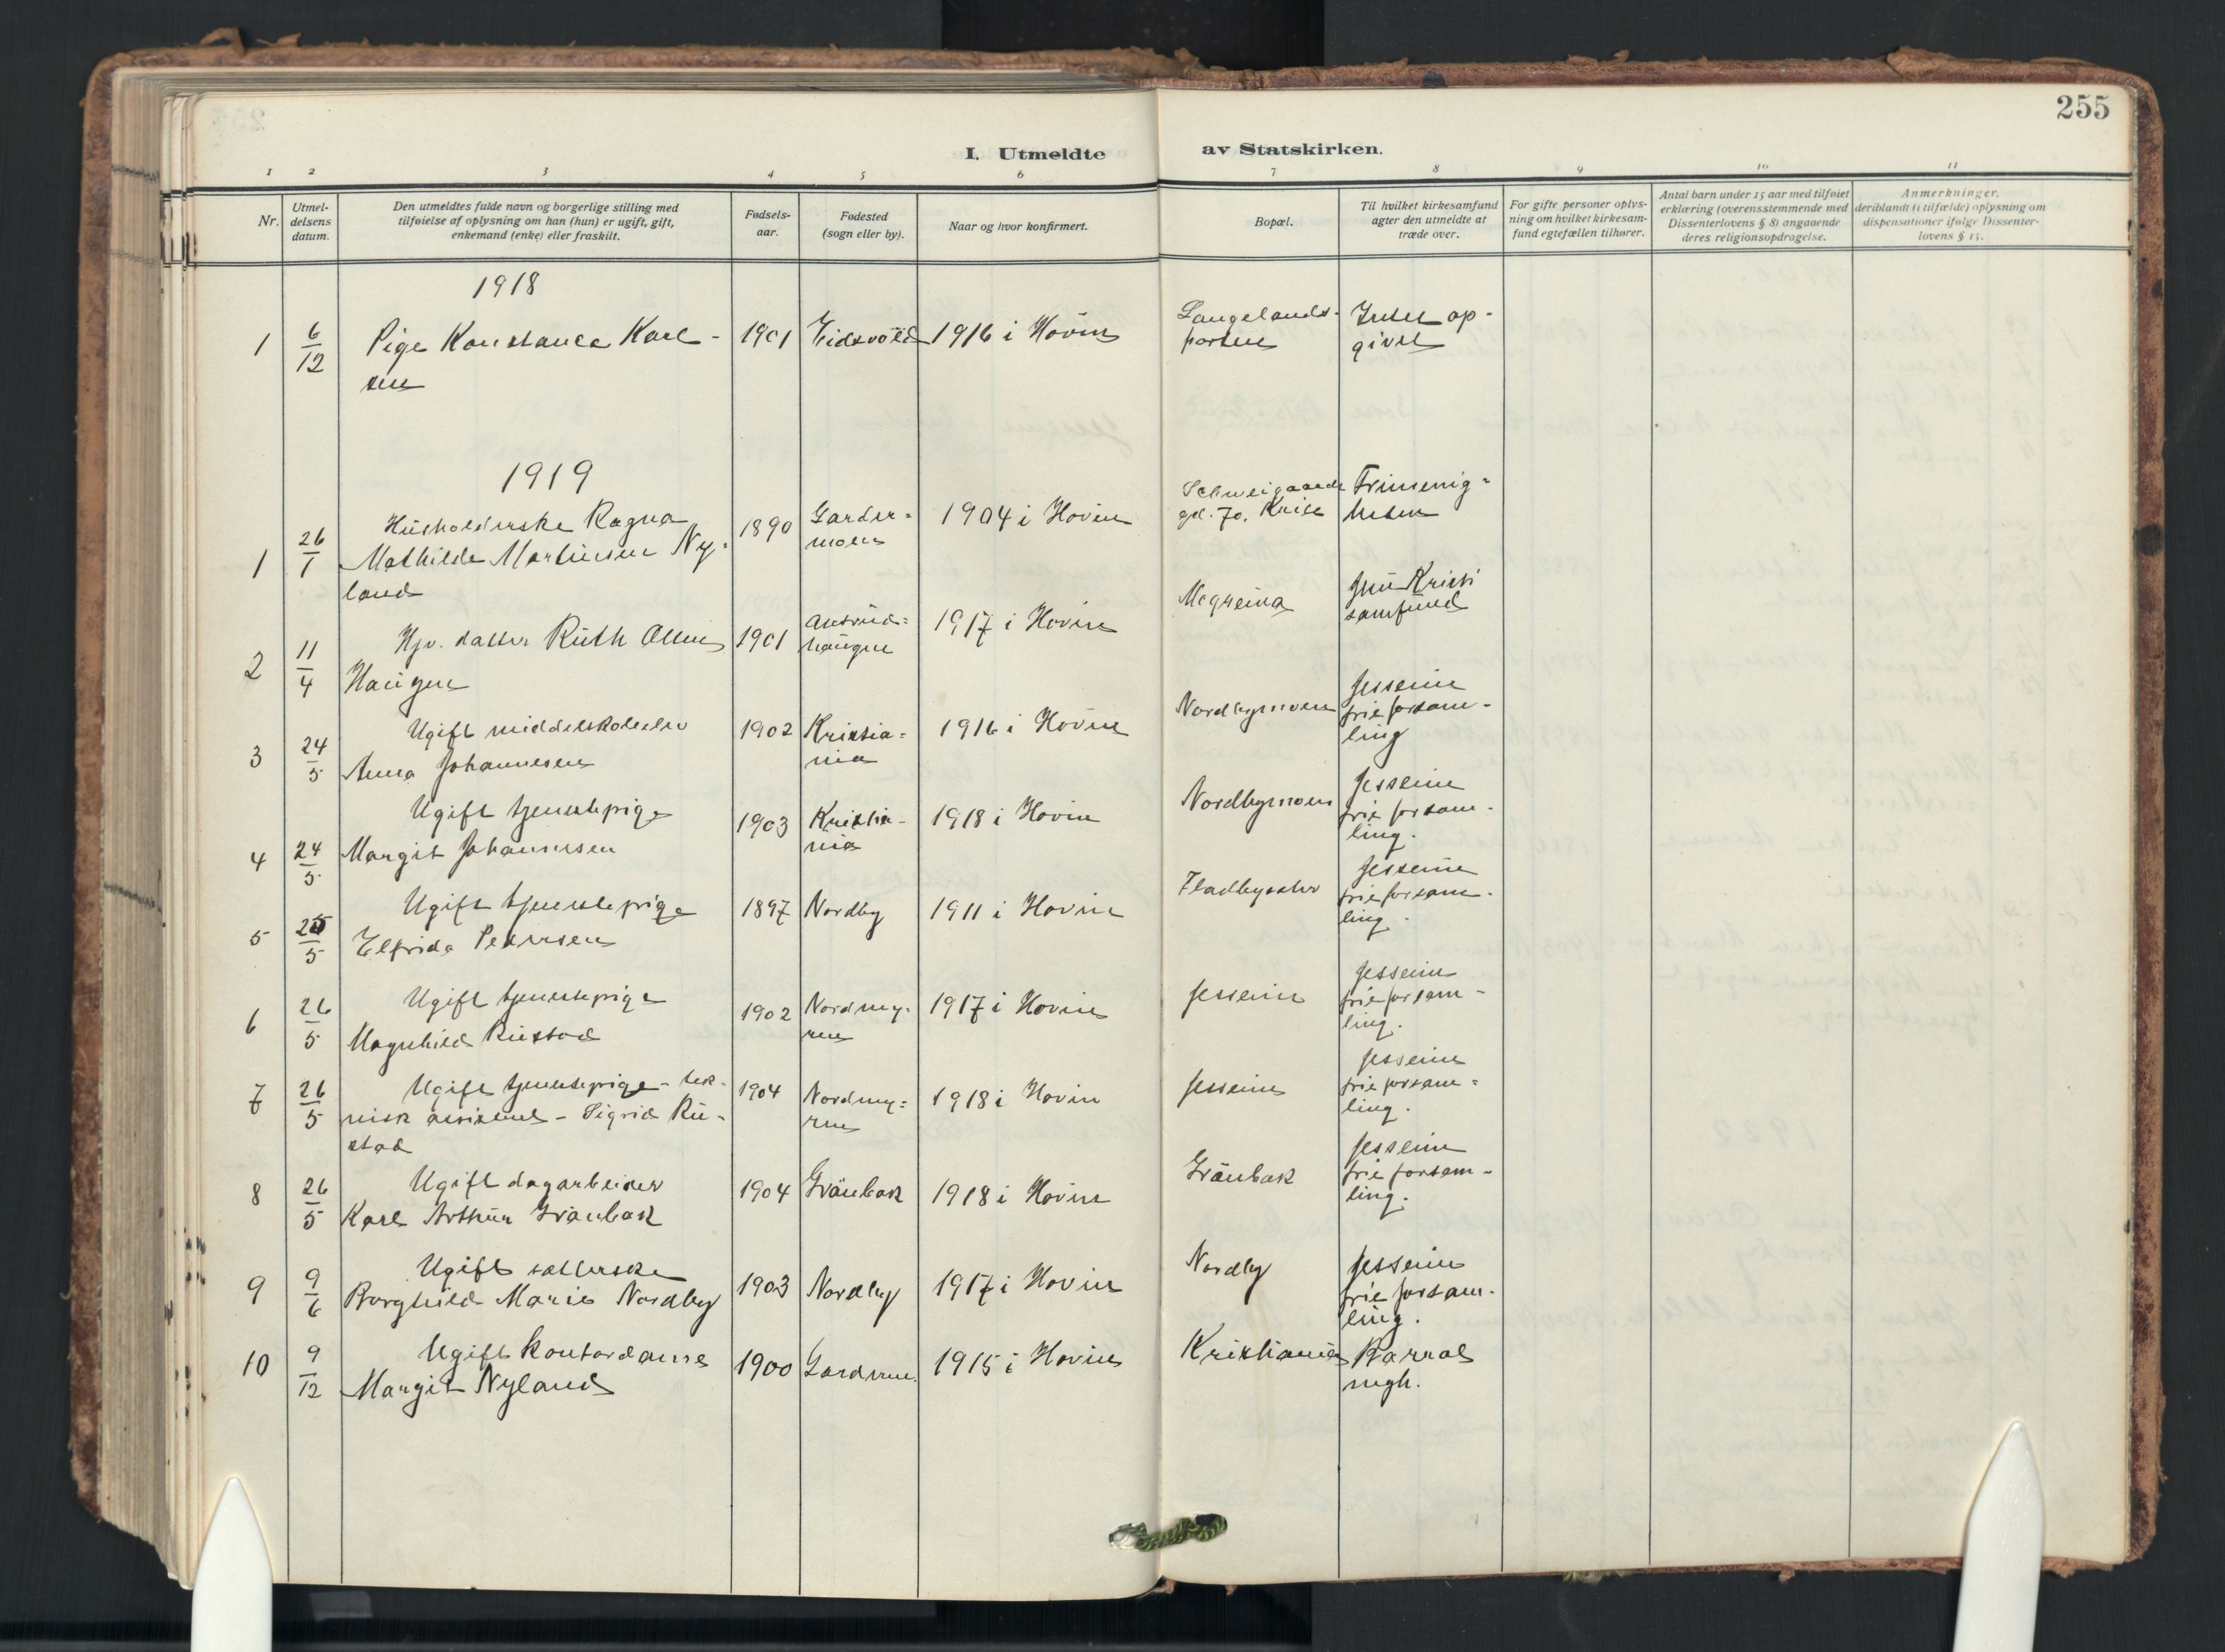 255
I. Utmeldte av Statskirken.
1 2 3 4 5 6 7 8 9 10 11
Nr.
Utmel-
delsens
datum.
Den utmeldtes fulde navn og borgerlige stilling med
tilføielse af oplysning om han (hun) er ugift, gift,
enkemand (enke) eller fraskilt.
Fødsels-
aar.
Fødested
(sogn eller by).
Naar og hvor konfirmert.
Bopæl.
Til hvilket kirkesamfund
agter den utmeldte at
træde over.
For gifte personer oplys-
ning om hvilket kirkesam-
fund egtefællen tilhører.
Antal barn under 15 aar med tilføiet
erklæring (overensstemmende med
Dissenterlovens § 8) angaaende
deres religionsopdragelse.
Anmerkninger,
deriblandt (i tilfælde) oplysning om
dispensationer ifølge Dissenter-
lovens § 15.
1918
1 6/12 Pige Konstance Karl-
sen
1901 Eidsvold 1916 i Hovin
Langelands-
porten
Intet op-
givet
1919
1 26/1 Husholderske Ragna
Mathilde Martinsen Ny-
land
1890 Garder-
moen
1904 i Hovin
Schweigaards
gt. 70. Kria
Trimenig-
heten
2 11/4 Hjv. datter Ruth Olsen
Haugen
1901
haugen
1917 i Hovin
Mogreina
Jesu Kristi
samfund
3 24/5 Ugift middelskoleelev
Anna Johannesen
1902 Kristia-
nia
1916 i Hovin
Nordbymoen
Jesseim
frie forsam-
ling
4 24/5 Ugift tjenestepige
Margit Johannesen
1903 Kristia-
nia
1918 i Hovin
Nordbymoen
Jesseim
frie forsam-
ling.
5 25/5 Ugift tjenestepige
Elfrida Pedersen
1897 Nordby 1911 i Hovin
Fladbysæter
Jesseim
frie forsam-
ling.
6 26/5 Ugift tjenestepige
Magnhild Rustad
1902 Nordmy-
ren
1917 i Hovin
Jesseim
Jesseim
frie forsam-
ling.
7 26/5 Ugift tjenestepige - tek-
nisk assistent - Sigrid Ru-
stad
1904 Nordmy-
ren
1918 i Hovin
Jesseim
Jesseim
frie forsam-
ling.
8 26/5 Ugift dagarbeider
Karl Arthur Graubak
1904 Graubak 1918 i Hovin
Graubak
Jesseim
frie forsam-
ling.
9 9/6 Ugift sætterske
Borghild Marie Nordby
1903 Nordby 1917 i Hovin
Nordby
Jesseim
frie forsam-
ling.
10 9/12 Ugift kontordame
Margit Nyland
1900 Gardmn. 1915 i Hovin
Kristiania
Barrat
mgh.